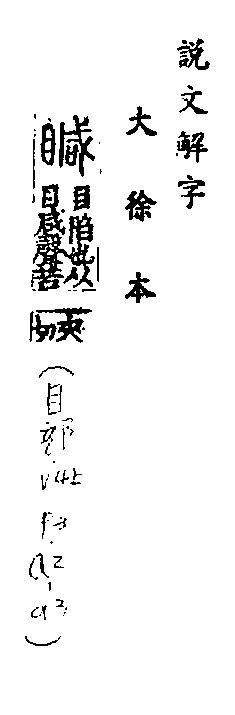 説文解字
大徐本
䁍
目陷也从
目咸聲苦
夾
切
(目部